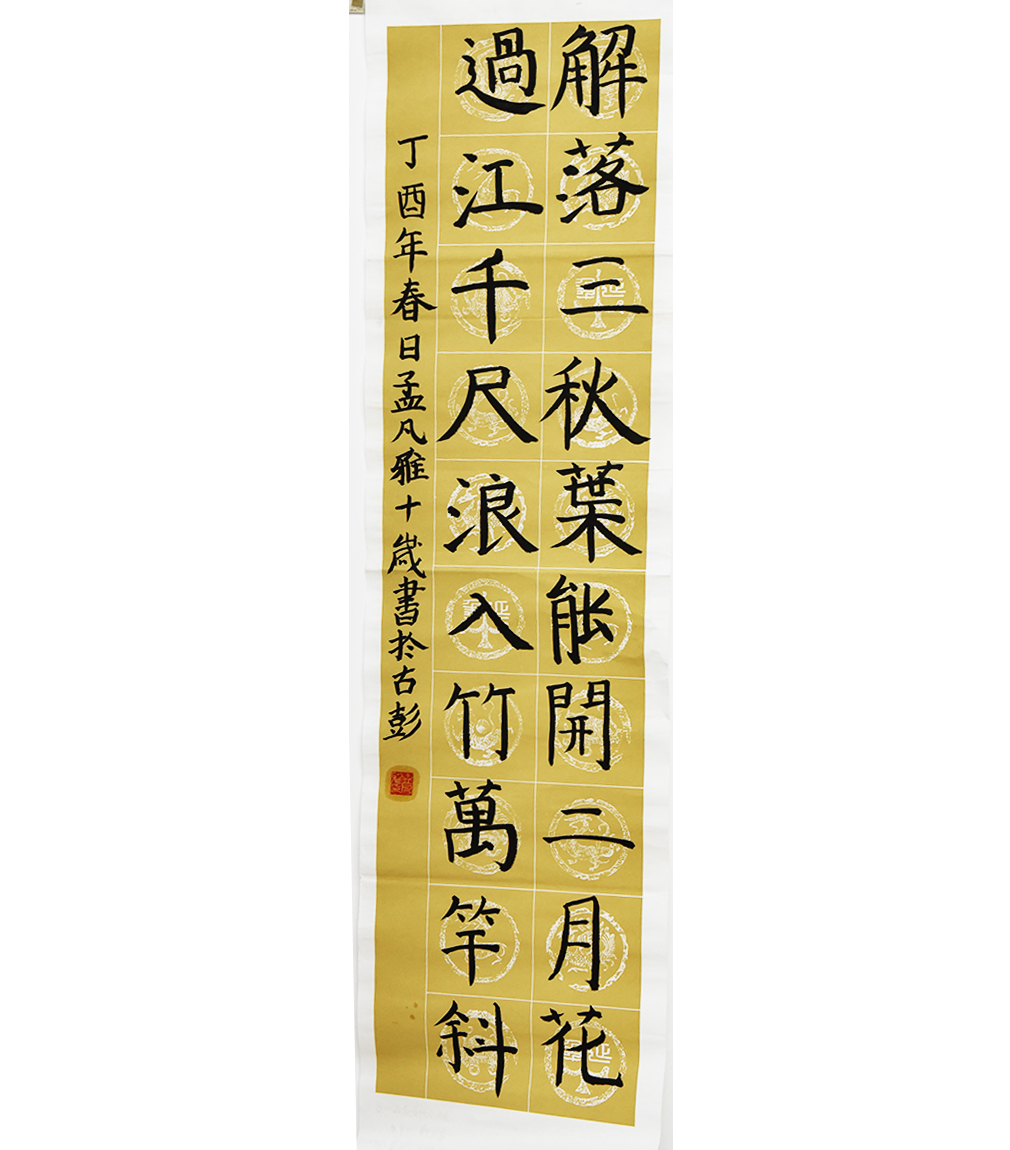 解落三秋葉能開二月花
過江千尺浪入竹萬竿斜
丁酉年春日孟凡雅十歲書於古彭